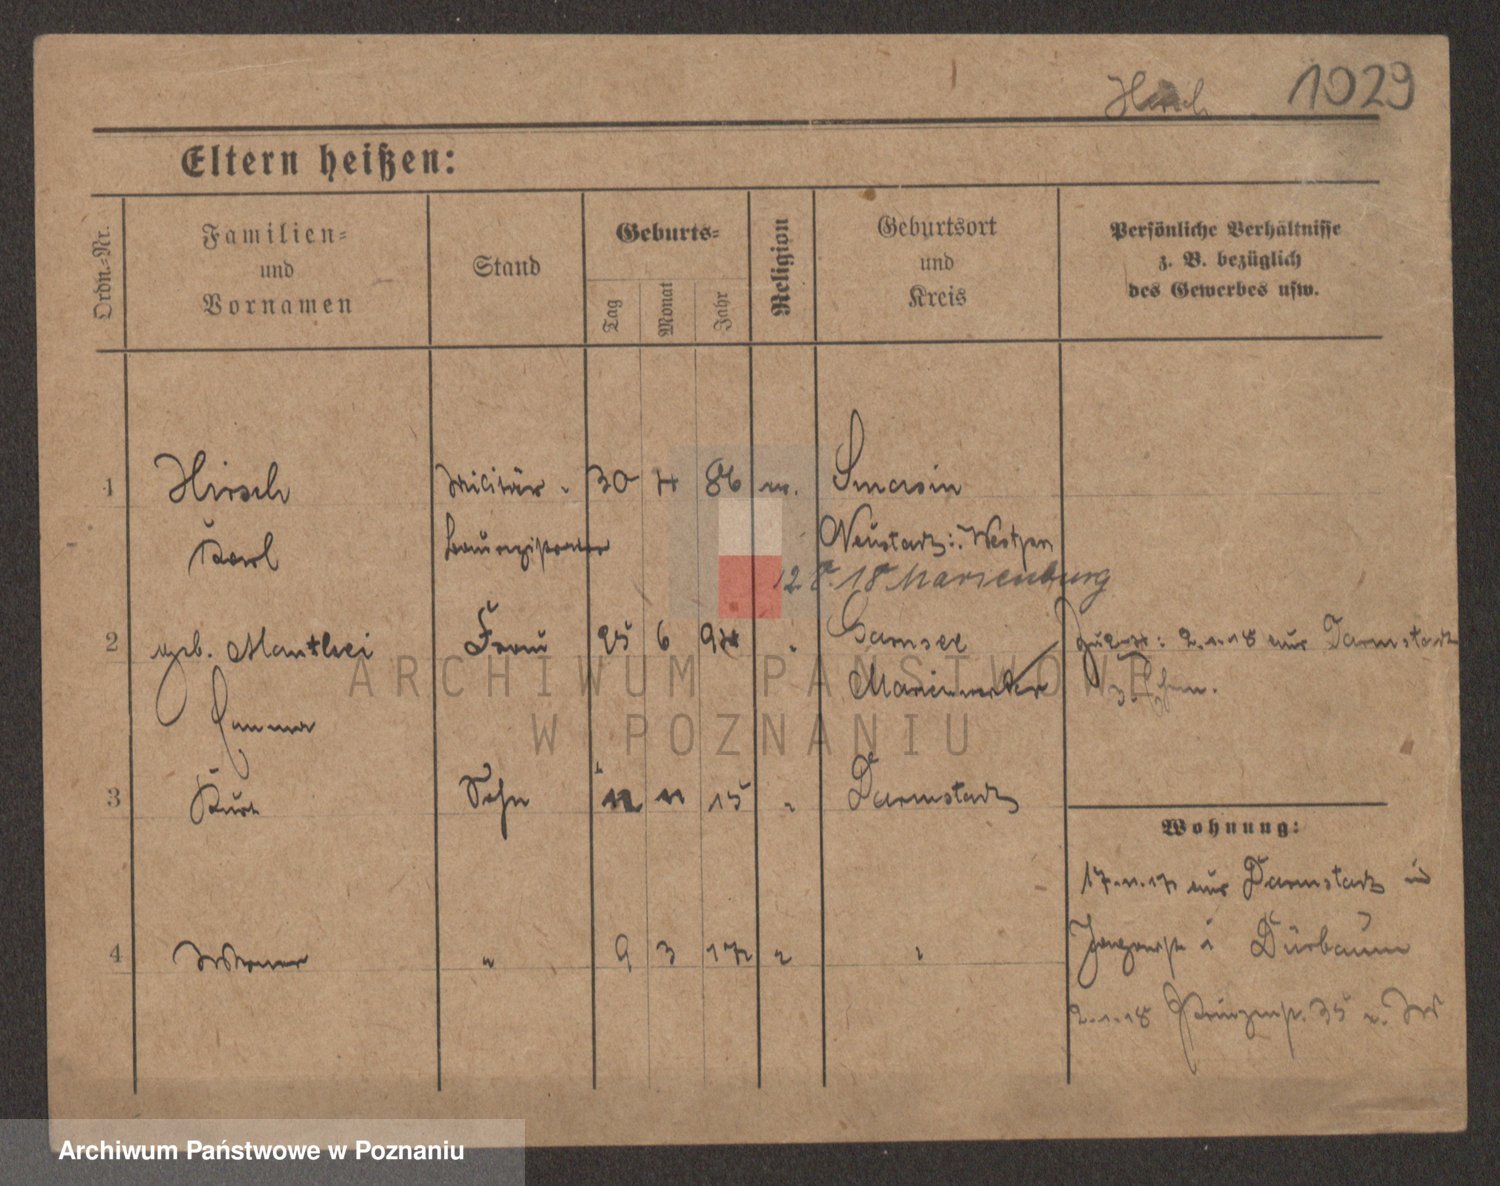 Hirsch 1029
Eltern heißen:
Ordn.-Nr.
Familien-
und
Vornamen
Stand
Geburts-
Tag
Monat
Jahr
Religion
Geburtsort
und
Kreis
Persönliche Verhältnisse
z. B. bezüglich
des Gewerbes usw.
1 Hirsch Militär- 30 86 Smasin
Karl Neustadt: Westpr
12 8. 18 Marienburg
2 geb. Manthei Frau 25 6 94 " Garnsee 2.1.18 aus Darmstadt
Marienwerder z. Ehem.
Emma
3 Kurt Sohn 11 11 15 " Darmstadt
Wohnung:
17.11.17 aus Darmstadt
4 Werner " 9 3 17 " " Dürbaum
2.1.18 Prinzenstr. 35
ARCHIWUM PAŃSTWOWE
W POZNANIU
Archiwum Państwowe w Poznaniu